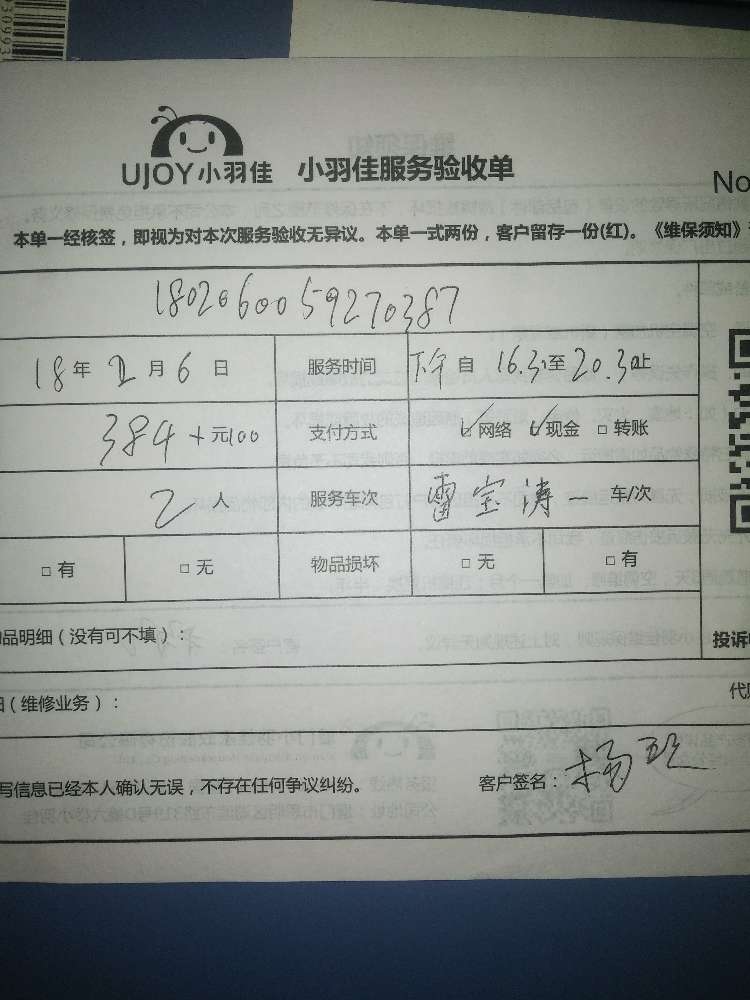 UJOY小羽佳 小羽佳服务验收单
No
本单一经核签，即视为对本次服务验收无异议。本单一式两份，客户留存一份(红)。《维保须知》
1802060059270387
18年2月6日 服务时间 下午自16.30至20.30止
384+元100 支付方式 ☑网络 ☑现金 □转账
2人 服务车次 雷宝涛一车/次
□有 □无 物品损坏 □无 □有
品明细（没有可不填）：
投诉
（维修业务）：
代
写信息已经本人确认无误，不存在任何争议纠纷。 客户签名：杨